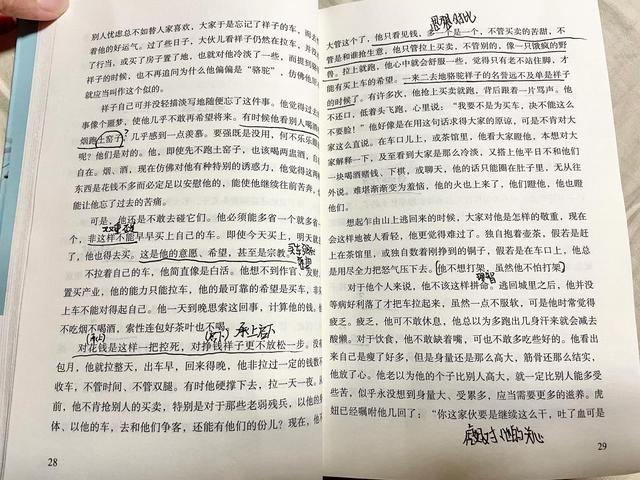 别人忧虑总不如替人家喜欢，大家于是忘记了祥子的车，而去
着他的好运气。过了些日子，大伙儿看祥子仍然在拉车，并没
了行当，或买了房子置了地，也就对他冷淡了一些，而提到
祥子的时候，也不再追问为什么他偏偏是“骆驼”，仿佛他
就应当叫作这个似的。
祥子自己可并没轻描淡写地随便忘了这件事。他觉得过去
事像个噩梦，使他几乎不敢再希望将来。有时候他看别人喝
烟跑土窑子，几乎感到一点羡慕。要强既是没用，何不乐乐
呢？他们是对的。他，即使先不跑土窑子，也该喝两盅酒，自
自在。烟、酒，现在仿佛对他有种特别的诱惑力，他觉得这
东西是花钱不多而必定足以安慰他的，能使他继续往前苦奔，
能让他忘了过去的苦痛。
可是，他还是不敢去碰它们。他必须能多省一个就多省一
个，非这样不能早早买上自己的车。即使今天买上，明天就
了，他也得去买。这是他的意愿、希望，甚至是宗教。
不拉着自己的车，他简直像是白活。他想不到作官、发财、
置买产业，他的能力只能拉车，他的最可靠的希望是买车，非
上车不能对得起自己。他一天到晚思索这回事，计算他的钱，
不吃烟不喝酒，索性连包好茶叶也不喝。
承上启下
对花钱是这样一把控死，对挣钱祥子更不放松一步。没
包月，他就拉整天，出车早，回来得晚，他非拉过一定的钱数
收车，不管时间、不管双腿。有时他硬撑下去，拉一天一夜，
前，他不肯抢别人的买卖，特别是对于那些老弱残兵，以他的
体、以他的车，去和他们争客，还能有他们的份儿？现在，他
28
大管这个了，他只看见钱，多一个是一个，不管买卖的苦甜，不
管是和谁抢生意，他只管拉上买卖，不管别的，像一只饿疯的野
兽。拉上就跑，他心中就会舒服一些，觉得只有老不站住脚，才
能有买上车的希望。一来二去地骆驼祥子的名誉远不及单是祥子
的时候了。有许多次，他抢上买卖就跑，背后跟着一片骂声。他
不还口，低着头飞跑，心里说：“我要不是为买车，决不能这么
不要脸！”他好像是在用这句话求得大家的原谅，可是不肯对大
家这么直说。在车口儿上，或茶馆里，他看大家瞪他，本想对大
家解释一下，及至看到大家是那么冷淡，又搭上他平日不和他们
一块喝酒赌钱、下棋，或聊天，他的话只能圈在肚子里，无从往
外说。难堪渐渐变为羞恼，他的火也上来了，他们瞪他，他也瞪
他们。
想起乍由山上逃回来的时候，大家对他是怎样的敬重，现在
会这样地被人看轻，他更觉得难过了。独自抱着壶茶，假若是赶
上在茶馆里，或独自数着刚挣到的铜子，假若是在车口上，他总
是用尽全力把怒气压下去。他不想打架，虽然他不怕打架
对于他个人来说，他不该这样拼命。逃回城里之后，他并没
等病好利落了才把车拉起来，虽然一点不服软，可是他时常觉得
疲乏。疲乏，他可不敢休息，他总以为多跑出几身汗来就会减去
酸懒。对于饮食，他不敢缺着嘴，可也不敢多吃些好的。他看出
来自己是瘦了好多，但是身量还是那么高大，筋骨还那么结实，
他放了心。他老以为他的个子比别人高大，就一定比别人能多受
些苦，似乎永没想到身量大、受累多，应当需要更多的滋养。虎
妞已经嘱咐他几回了：“你这家伙要是继续这么干，吐了血可是
虎妞对他的关心
29